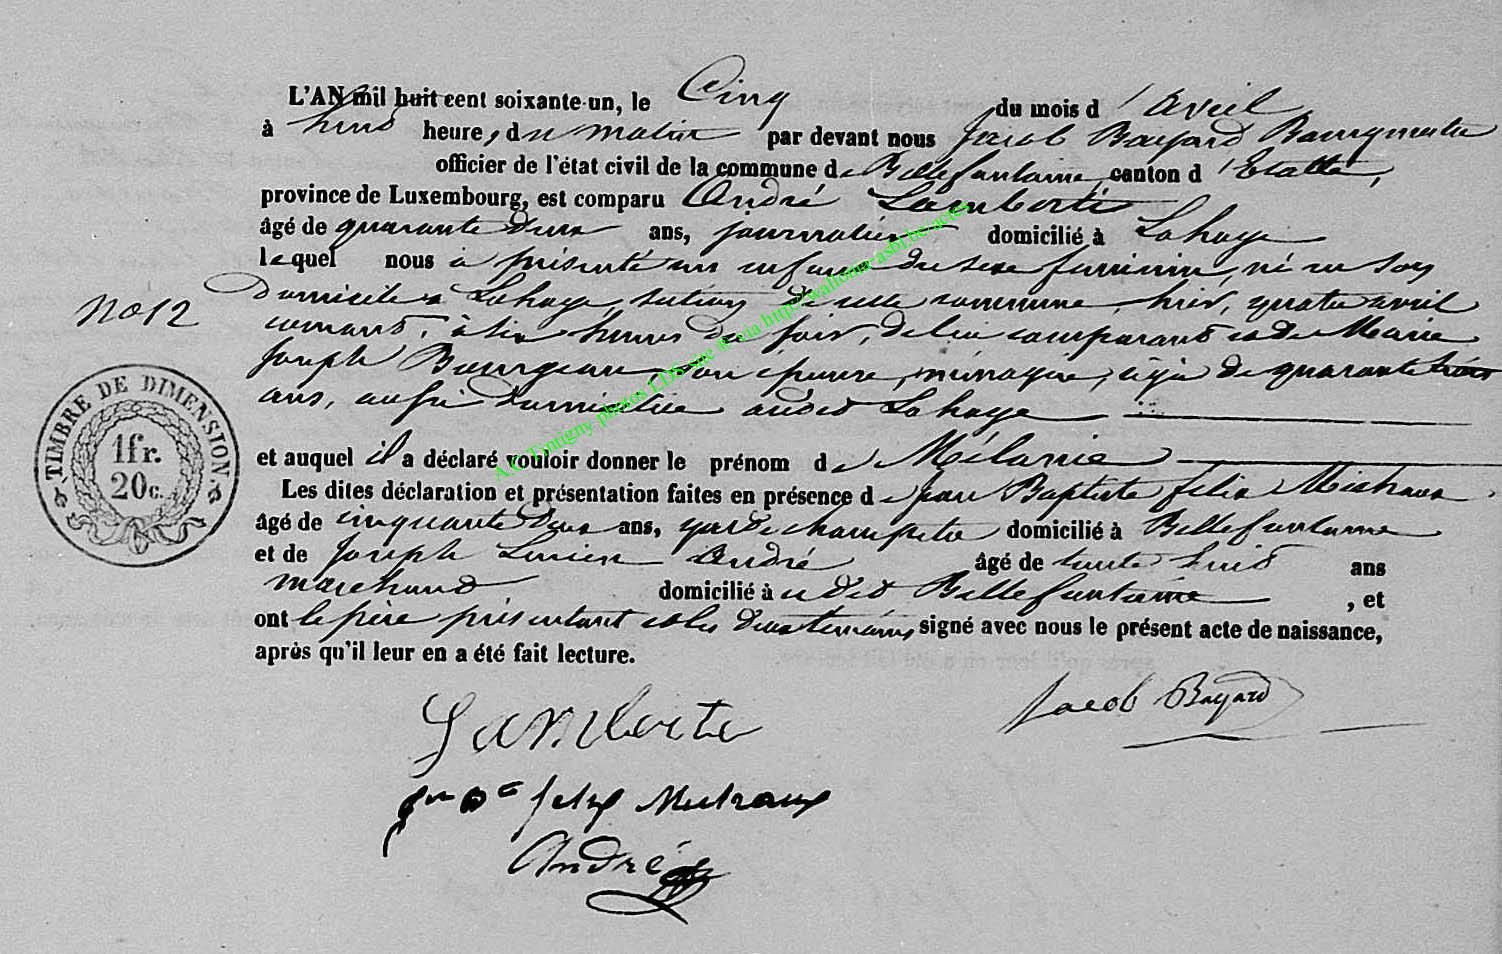 L'AN mil huit cent soixante-un, le Cinq du mois d'avril
à huit heures du matin par devant nous Jacob Bayard Bourgmestre
officier de l'état civil de la commune de Bellefontaine canton d'Etalle,
province de Luxembourg, est comparu André Lamberté
âgé de quarante deux ans, journalier domicilié à Lahage
lequel nous a présenté un enfant du sexe feminin, né en son
domicile à Lahage, section de cette commune, hier, quatre avril
courant, à six heures du soir, de lui comparant et de Marie
Joseph Bourgeau, son épouse, ménagère, âgée de quarante trois
ans, aussi domiciliée audit Lahage
No 12
TIMBRE DE DIMENSION
1fr.
20c.
et auquel il a déclaré vouloir donner le prénom de Mélanie
Les dites déclaration et présentation faites en présence de Jean Baptiste felix Michaux
âgé de cinquante deux ans, garde champêtre domicilié à Bellefontaine
et de Joseph Lucien André âgé de trente huit ans
marchand domicilié à udit Bellefontaine, et
ont le père présentant et les deux témoins signé avec nous le présent acte de naissance,
après qu'il leur en a été fait lecture.
Lamberte
Jacob Bayard
felix Michaux
André
A.C. Tintigny photos LDS site # via http://wallonia-asbl.be/actes